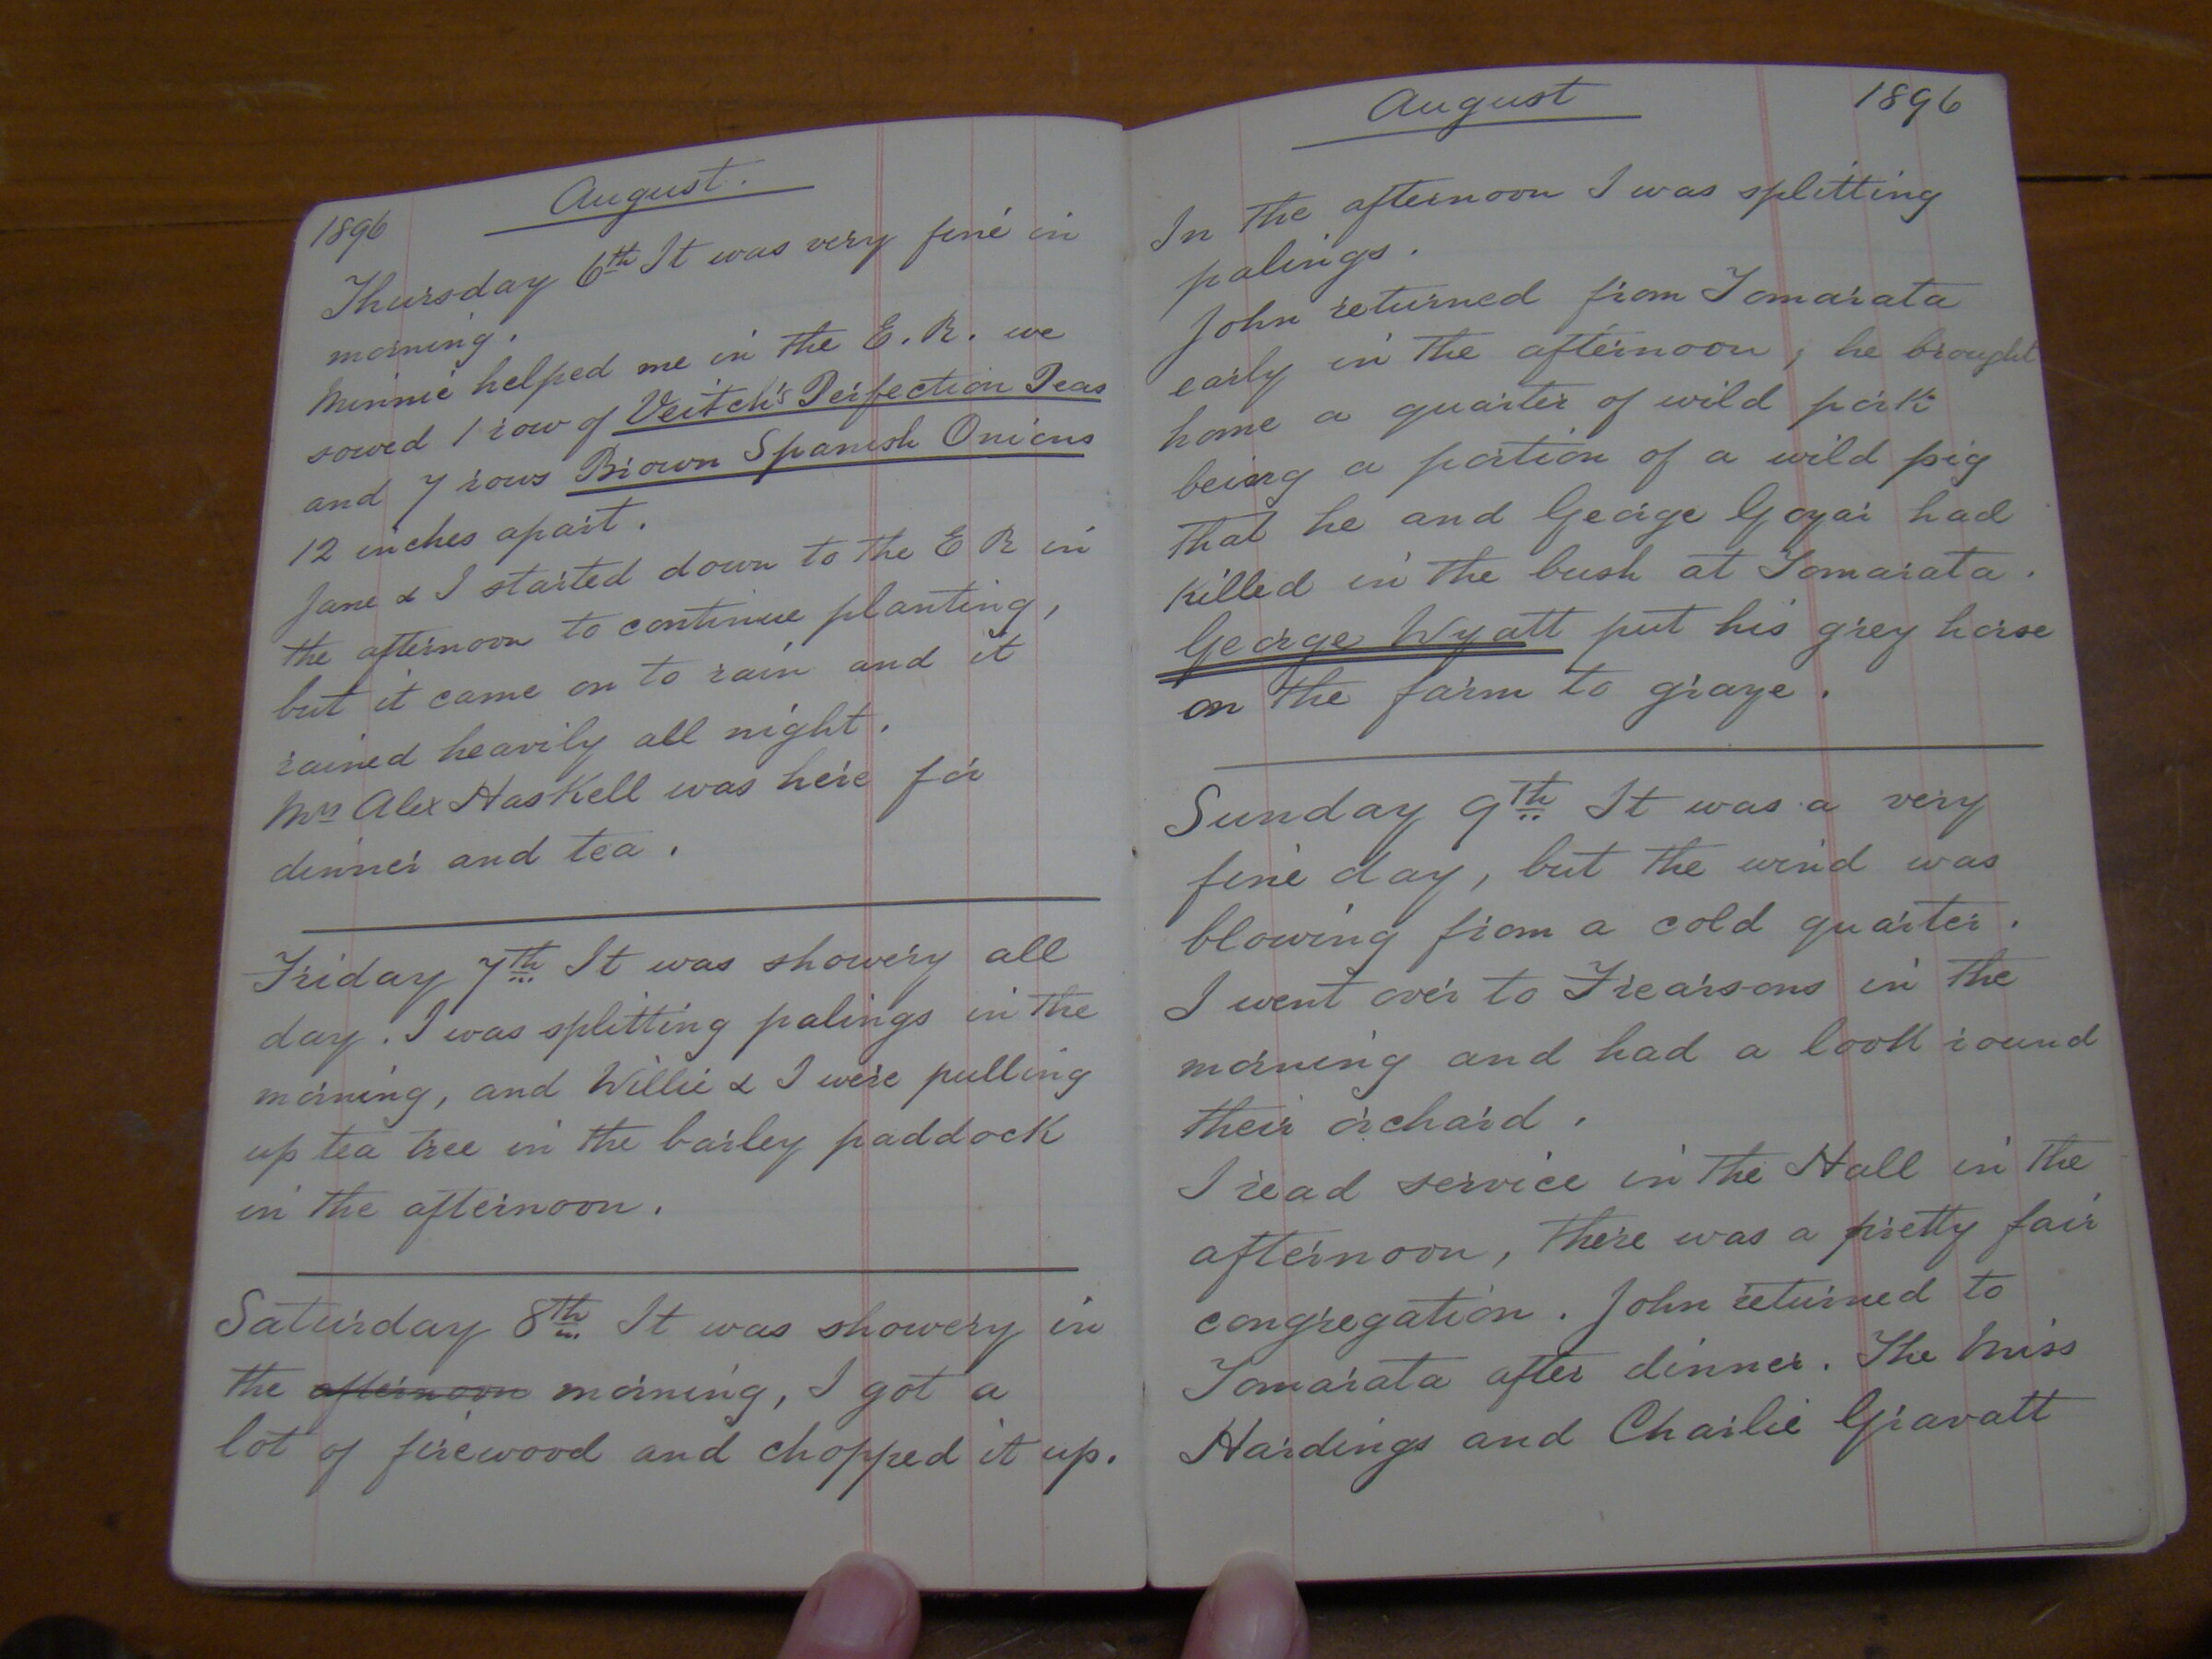 1896
August.
Thursday 6th It was very fine in
morning.
Minnie helped me in the E. R. we
sowed 1 row of Veitch's Perfection Peas
and 7 rows Brown Spanish Onions
12 inches apart.
Jane & I started down to the E R in
the afternoon to continue planting,
but it came on to rain and it
rained heavily all night.
Mrs Alex Haskell was here for
dinner and tea.
Friday 7th It was showery all
day. I was splitting palings in the
morning, and Willie & I were pulling
up tea tree in the barley paddock
in the afternoon.
Saturday 8th It was showery in
the afternoon morning, I got a
lot of firewood and chopped it up.
August
1896
In the afternoon I was splitting
palings.
John returned from Tomarata
early in the afternoon, he brought
home a quarter of wild pork
being a portion of a wild pig
that he and George Gozar had
killed in the bush at Tomarata.
George Wyatt put his grey horse
on the farm to graze.
Sunday 9th It was a very
fine day, but the wind was
blowing from a cold quarter.
I went over to Frearsons in the
morning and had a look round
their orchard.
I read service in the Hall in the
afternoon, there was a pretty fair
congregation. John returned to
Tomarata after dinner. The Miss
Hardings and Charlie Gravatt